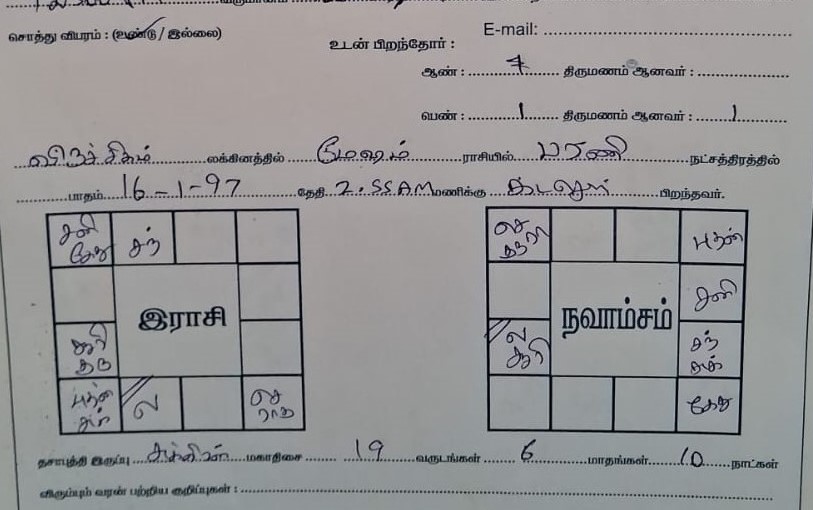 சொத்து விபரம் : (உண்டு / இல்லை)
உடன் பிறந்தோர் : E-mail:
ஆண் : திருமணம் ஆனவர் :
பெண் : 1 திருமணம் ஆனவர் : 1
விருச்சிகம் லக்கினத்தில் மேஷம் ராசியில் பரணி நட்சத்திரத்தில்
பாதம் 16-1-97 தேதி 2.55AM மணிக்கு கடலூர் பிறந்தவர்.
சனி கேது சந்
இராசி
சூரி குரு
புதன் சுக் ல செ ராகு
செ புதன்
சனி
நவாம்சம்
ல சூரி சந் சுக்
கேது
தசாபுத்தி இருப்பு சுக்கிரன் மகாதிசை 19 வருடங்கள் 6 மாதங்கள் 10 நாட்கள்
விரும்பும் வரன் பற்றிய குறிப்புகள் :